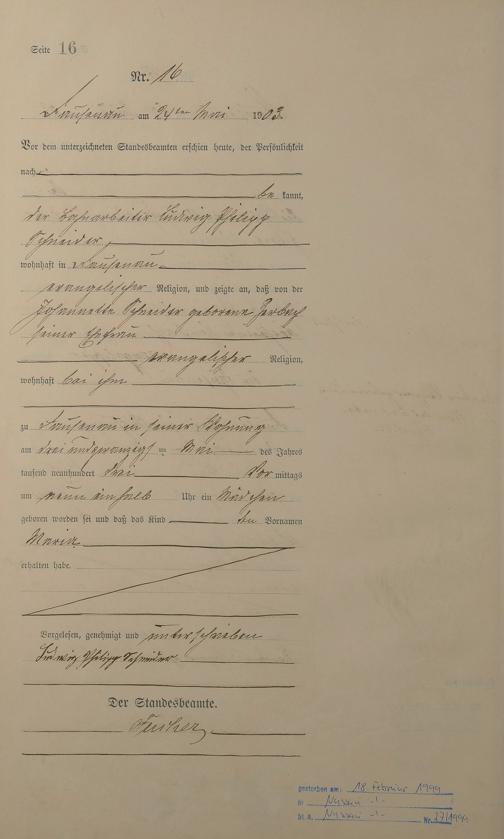 Seite 16
Nr. 16
Dausenau am 24ten Mai 1903.
Vor dem unterzeichneten Standesbeamten erschien heute, der Persönlichkeit
nach
be kannt,
der Bahnarbeiter Ludwig Philipp
Schneider,
wohnhaft in Dausenau
evangelischer Religion, und zeigte an, daß von der
Johannette Schneider geborene
seiner Ehefrau
evangelischer Religion,
wohnhaft bei ihm
zu Dausenau in seiner Wohnung
am drei und zwanzigsten Mai des Jahres
tausend neunhundert drei Vor mittags
um neun einhalb Uhr ein Mädchen
geboren worden sei und daß das Kind den Vornamen
Maria
erhalten habe.
Vorgelesen, genehmigt und unterschrieben
Ludwig Philipp Schneider
Der Standesbeamte.
gestorben am: 18. Februar 1999
in Nassau
St. A. Nassau Nr. 27/1999